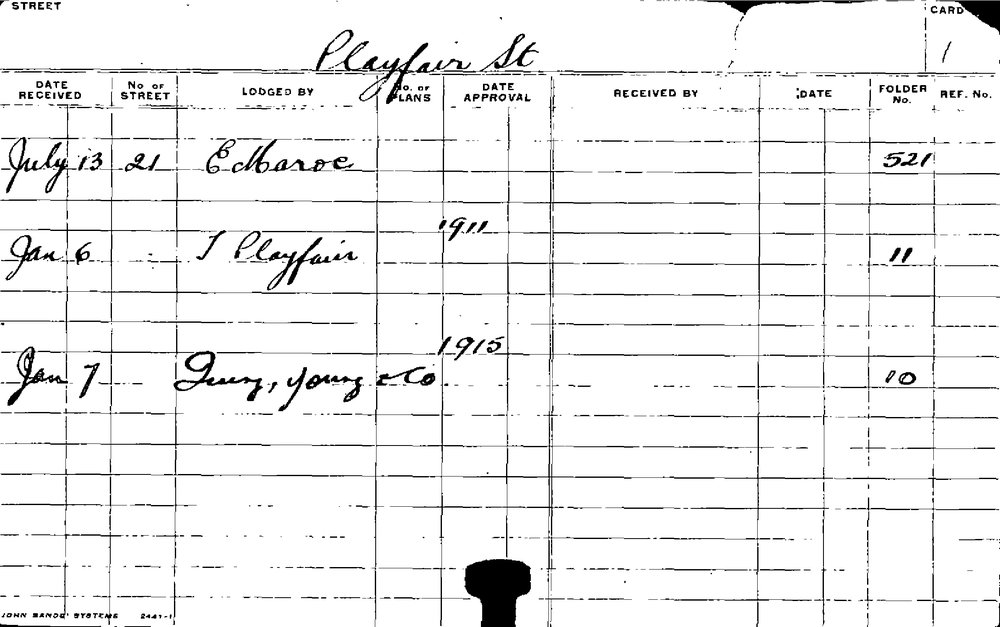 STREET
CARD
Playfair St
1
DATE RECEIVED No OF STREET LODGED BY No. OF PLANS DATE APPROVAL RECEIVED BY DATE FOLDER No. REF. No.
July 13 21 E Maroe 521
1911
Jan 6 T Playfair 11
1915
Jan 7 Young & Co 10
JOHN SANDS SYSTEMS 2441-1